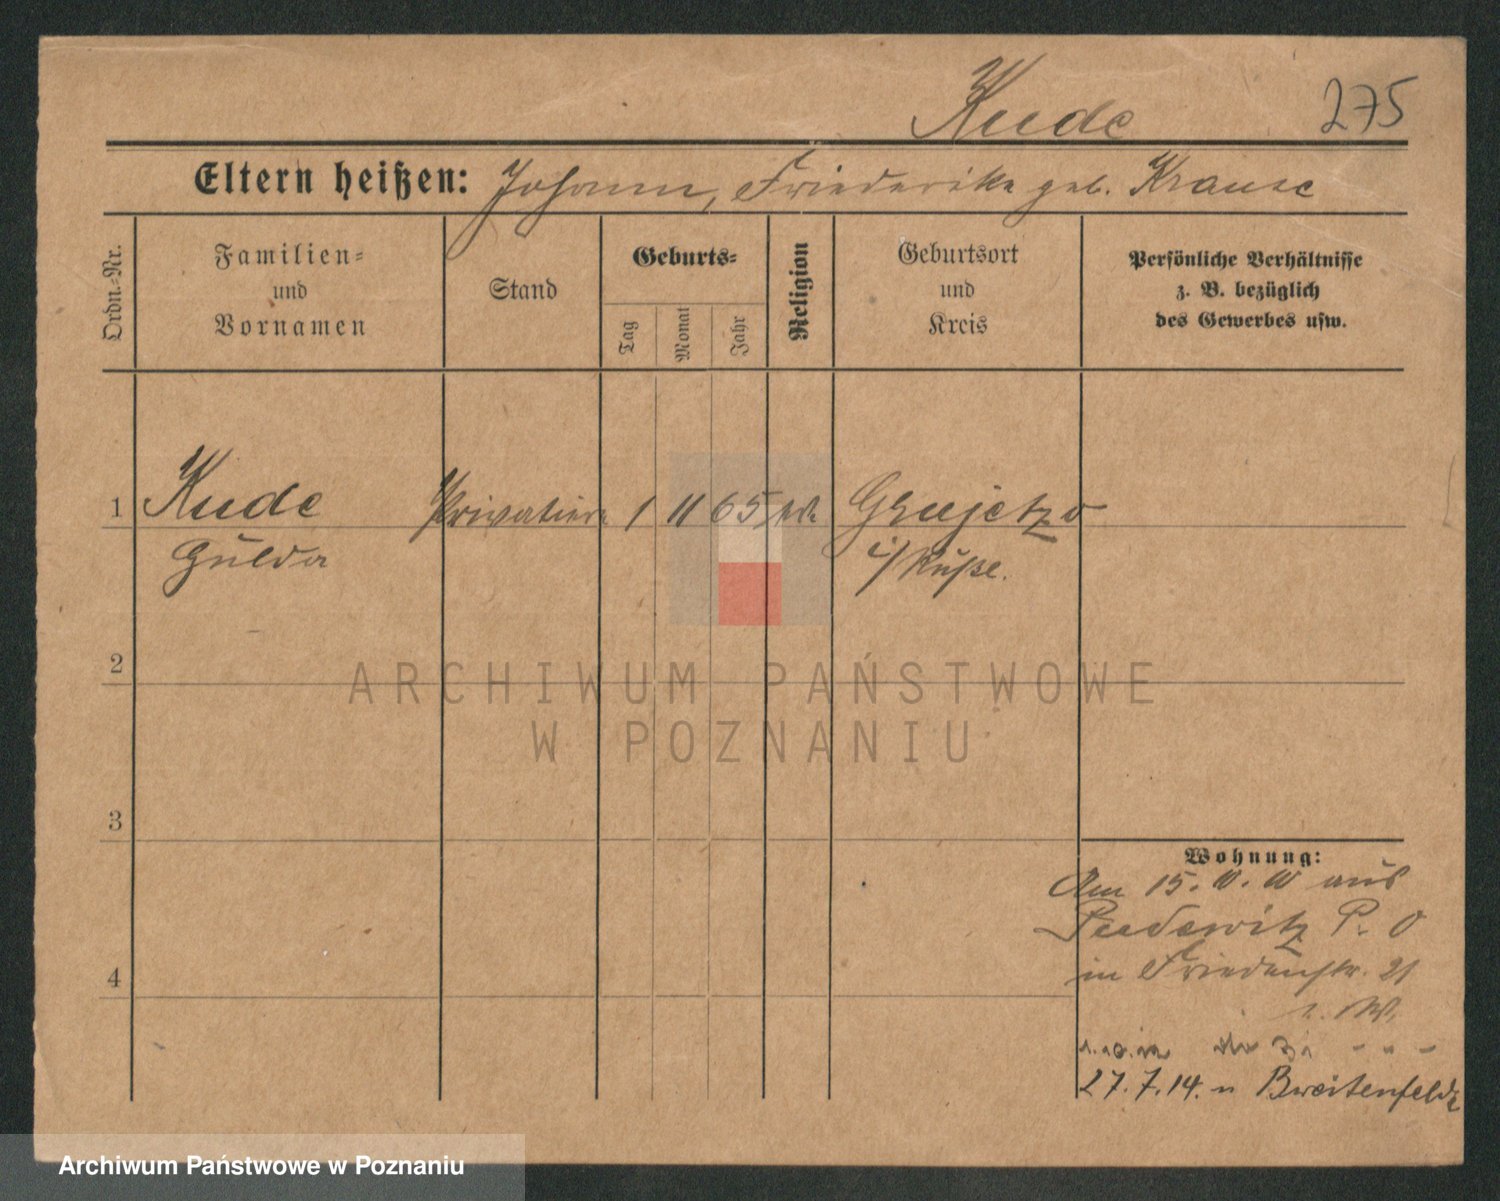 Kude 275
Eltern heißen: Johann, Friederike geb. Krause
Ordn.-Nr.
Familien-
und
Vornamen
Stand
Geburts-
Tag
Monat
Jahr
Religion
Geburtsort
und
Kreis
Persönliche Verhältnisse
z. B. bezüglich
des Gewerbes usw.
1 Kude Privatiere 1 11 65
i/
2
ARCHIWUM PAŃSTWOWE
W POZNANIU
3
Wohnung:
Am 15. aus
Pudewitz P. O
4
in Friedenstr. 21
27.7.14. n Breitenfelde
Archiwum Państwowe w Poznaniu